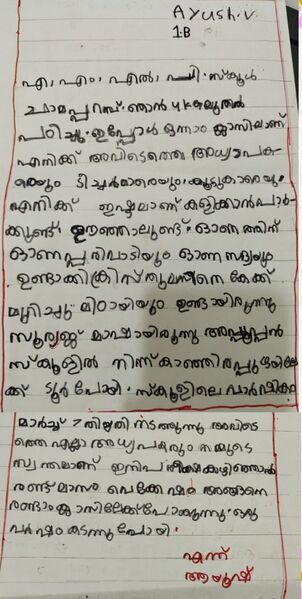 Ayush.V
1.B
എ,എം,എൽ,പി.സ്കൂൾ
ചാമപ്പറമ്പ്.ഞാൻ UKGമുതൽ
പഠിച്ചു.ഇപ്പോൾ ഒന്നാം ക്ലാസിലാണ്
എനിക്ക് അവിടെത്തെ അധ്യാപക
രെയും ടീച്ചർമാരെയും,കൂട്ടുകാരെയും
എനിക്ക് ഇഷ്ടമാണ് കളിക്കാൻപാർ
ക്കുണ്ട് ഊഞ്ഞാലുണ്ട്.ഓണത്തിന്
ഓണപ്പരിപാടിയും ഓണസദ്യയും
ഉണ്ടാക്കിക്രിസ്തുമസിനെ കേക്ക്
മുറിച്ചു മിഠായിയും ഉണ്ടായിരുന്നു
സൂര്യജ് മാഷായിരുന്നു അപ്പൂപ്പൻ
സ്കൂളിൽ നിന്ന് കാഞ്ഞിരപ്പുഴയിലേ
ക്ക് ടൂർ പോയി.സ്കൂളിലെ വാർഷികം
മാർച്ച് 7 തിയ്യതി നടത്തുന്നു അവിടെ
ത്തെ എല്ലാ അധ്യപകരും നമ്മുടെ
സ്വന്തമാണ് ഇനിപരീക്ഷകഴിഞ്ഞാൽ
രണ്ട് മാസം വെക്കേഷൻ അങ്ങനെ
രണ്ടാംക്ലാസിലേക്ക്പോകുന്നു.ഒരു
വർഷം കടന്നുപോയി.
എന്ന്
ആയുഷ്